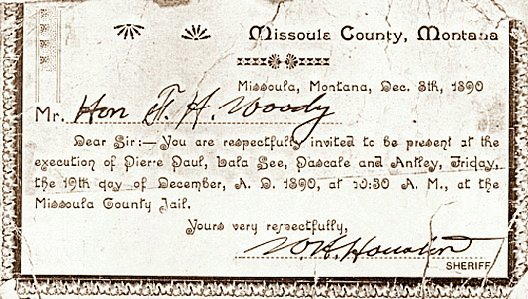 Missoula County, Montana
Missoula, Montana, Dec. 8th, 1890
Mr. Hon F. H. Woody
Dear Sir:— You are respectfully invited to be present at the
execution of Pierre Paul, Lala See, Pascale and Antley, Friday,
the 19th day of December, A. D. 1890, at 10:30 A. M., at the
Missoula County Jail.
Yours very respectfully,
W. H. Houston
SHERIFF